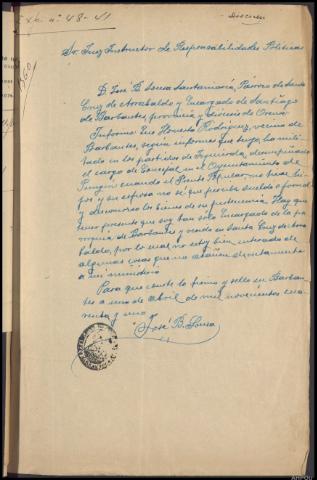 Exp. nº 48-41
Sr. Juez Instructor de Responsabilidades Políticas
D. José B. Sousa Santamaría, Párroco de Santa
Cruz de Arrabaldo y Encargado de Santiago
de Barbantes, provincia y diócesis de Orense
Informa: Que Honesto Rodríguez, vecino de
Barbantes, según informes que tengo, ha mili-
tado en los partidos de izquierda, desempeñado
el cargo de Concejal en el Ayuntamiento de
Punjín cuando el Frente Popular, no tiene hi-
jos y su esposa no sé que perciba sueldo
y desconozco los bienes de su pertenencia. Hay que
tener presente que soy tan sólo Encargado de la pa-
rroquia de Barbantes y resido en Santa Cruz de Arra-
baldo, por lo cual no estoy bien enterado de
algunas cosas que no atañen directamente
a mi ministerio
Para que conste lo firmo y sello en Barban-
tes a uno de abril de mil novecientos cua-
renta y uno
José B. Sousa